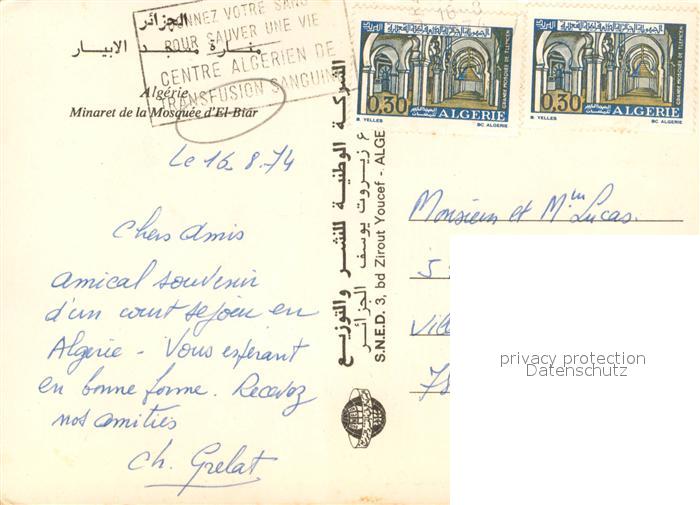 الجزائر
منارة مسجد الابيار
DONNEZ VOTRE SANG
POUR SAUVER UNE VIE
CENTRE ALGERIEN DE
TRANSFUSION SANGUINE
Algérie
Minaret de la Mosquée d'El-Biar
Le 16.8.74
Chers Amis
Amical souvenir
d'un court séjour en
Algérie - Vous espérant
en bonne forme. Recevez
nos amitiés
Ch. Grelat
الشركة الوطنية للنشر والتوزيع
3 زيروت يوسف الجزائر
S.N.E.D. 3, bd Zirout Youcef - ALGE
16-8
0,30
ALGERIE
GRANDE MOSQUÉE DE TLEMCEN
B. YELLES
BC ALGERIE
0,30
ALGERIE
GRANDE MOSQUÉE DE TLEMCEN
B. YELLES
BC ALGERIE
Monsieur et Mme Lucas
5
78
privacy protection
Datenschutz